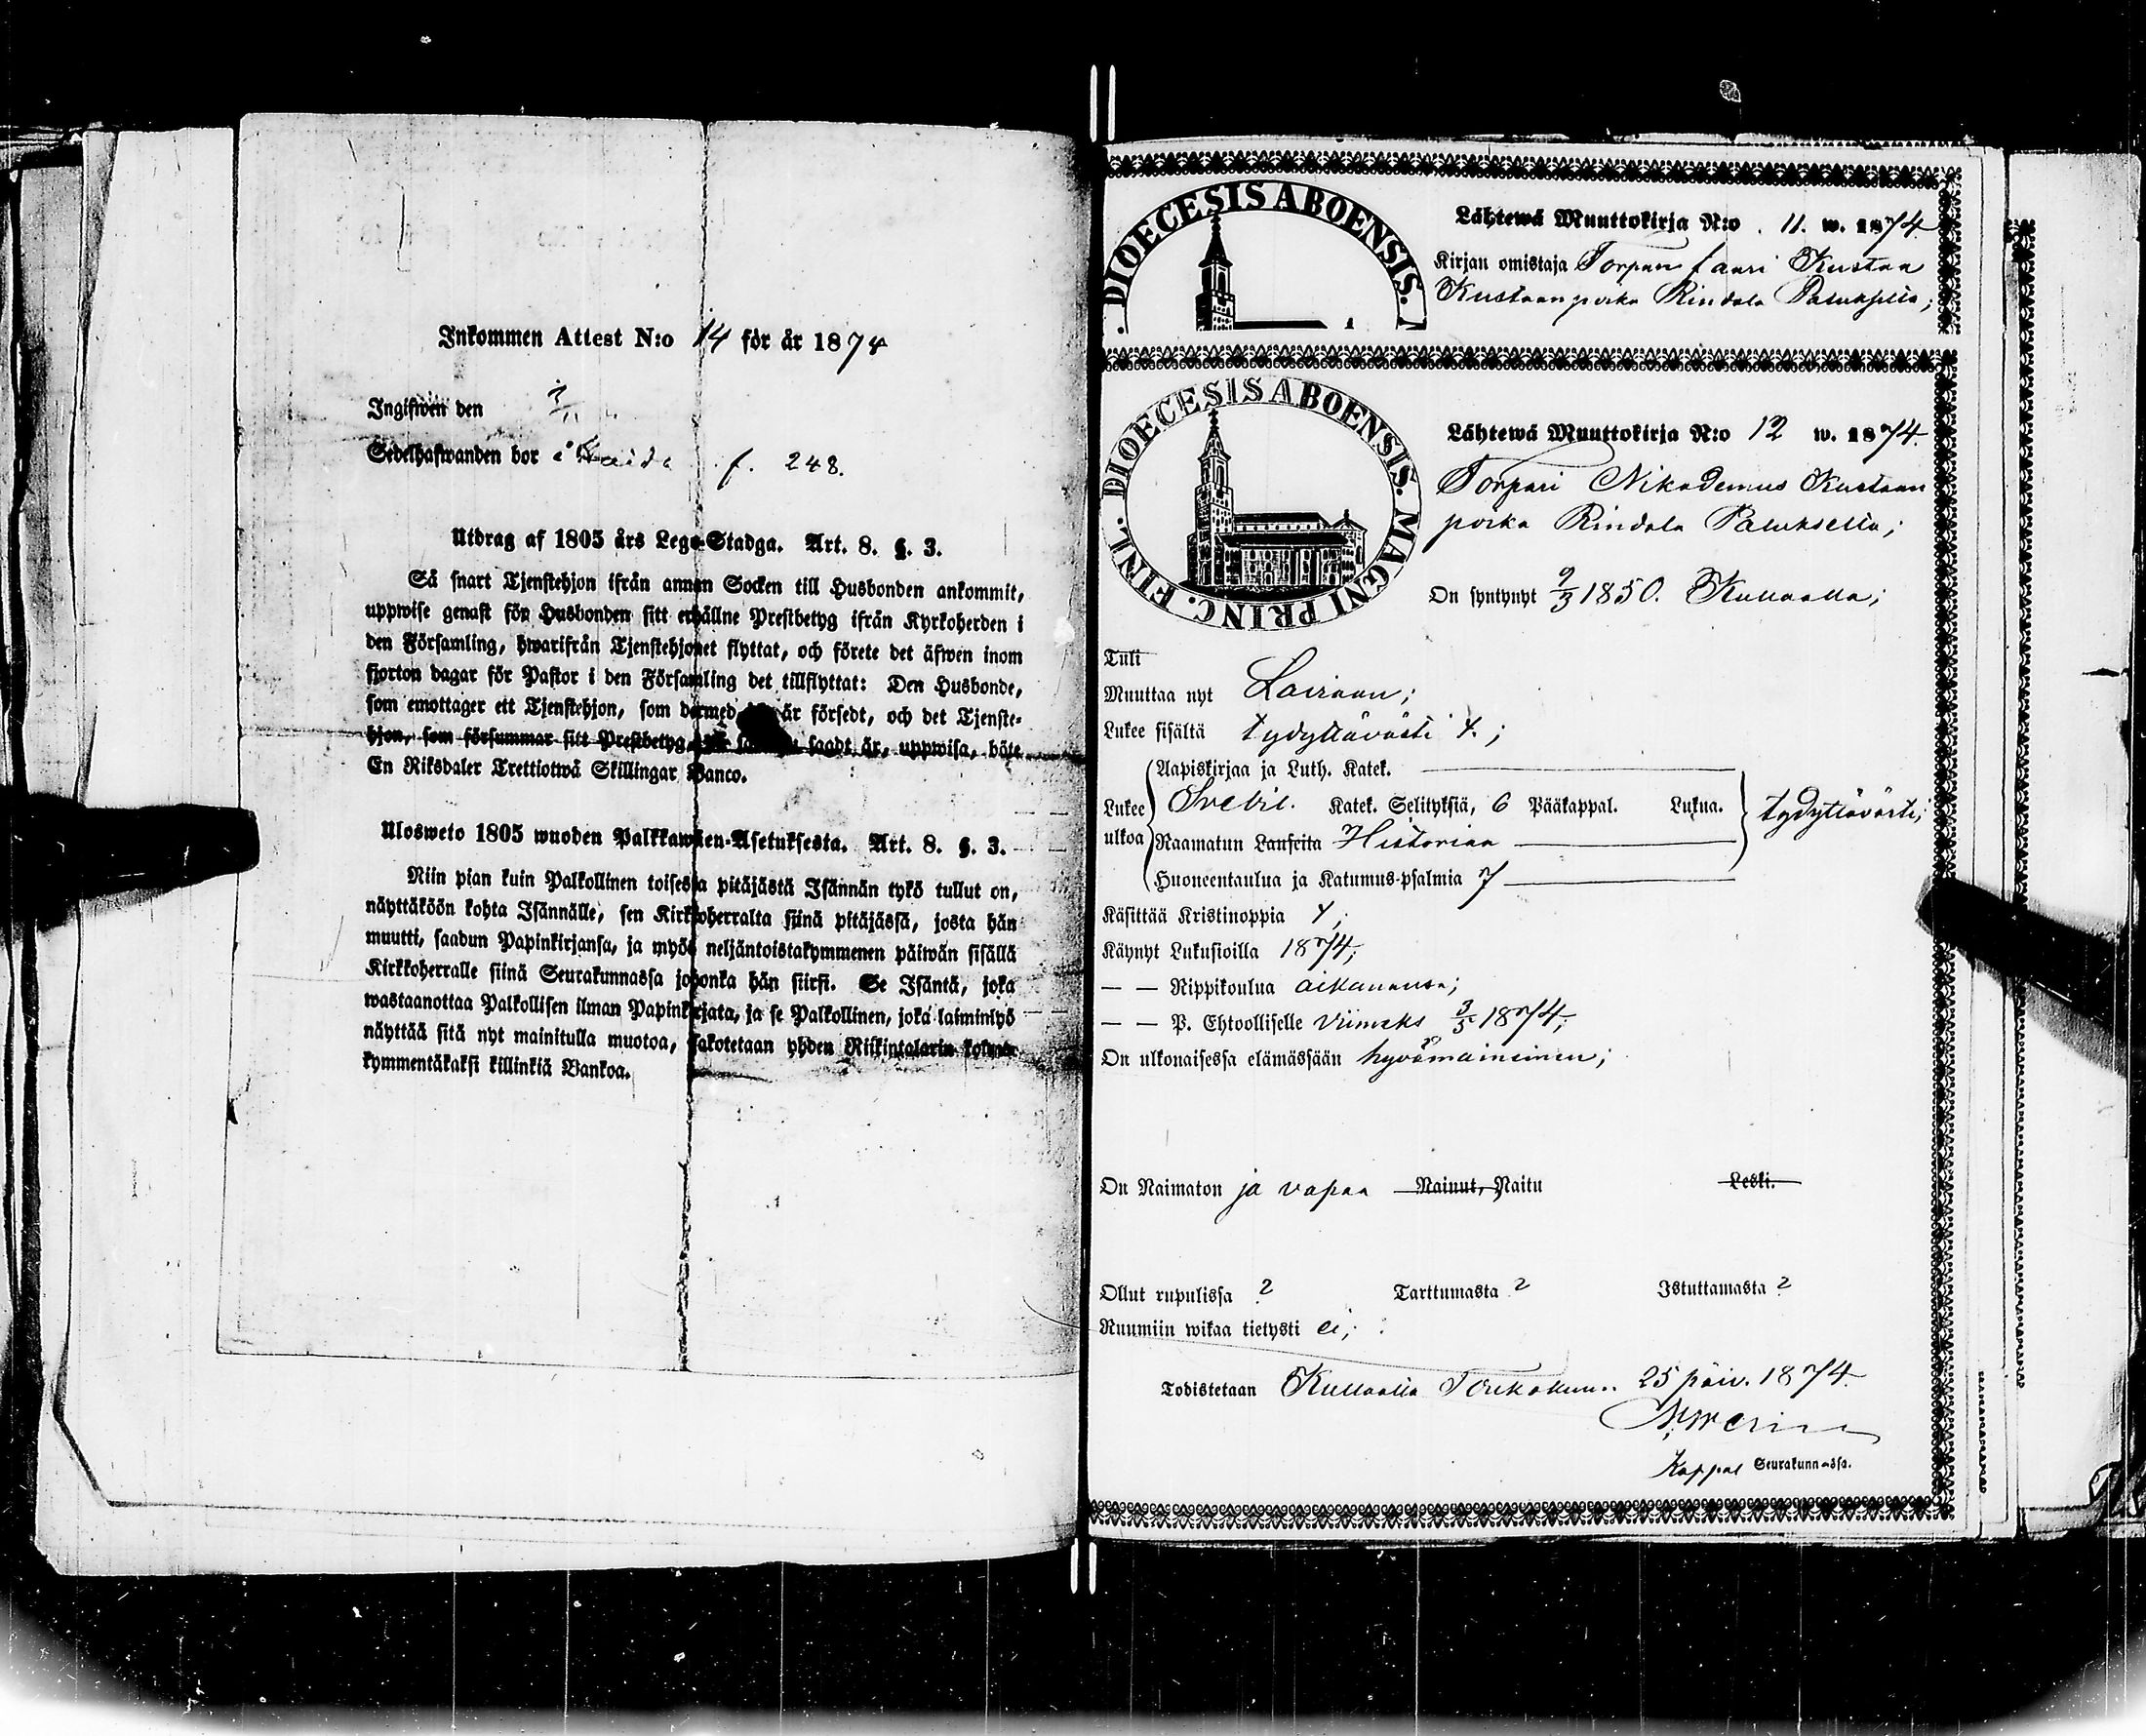 Inkommen Attest N:o 14 för år 1874
Ingifwen den
Sedelhafwanden bor i f. 248.
Utdrag af 1805 års Lego-Stadga. Art. 8. §. 3.
Så snart Tjenstehjon ifrån annan Socken till Husbonden ankommit,
uppwise genast för Husbonden sitt erhållne Prestbetyg ifrån Kyrkoherden i
den Församling, hwarifrån Tjenstehjonet flyttat, och förete det äfwen inom
fjorton dagar för Pastor i den Församling det tillflyttat: Den Husbonde,
som emottager ett Tjenstehjon, som dermed är försedt, och det Tjenste-
hjon, som försummar sitt Prestbetyg, sagdt är, uppwisa, böte
En Riksdaler Trettiotwå Skillingar Banco.
Ulosweto 1805 wuoden Palkkawäen-Asetuksesta. Art. 8. §. 3.
Niin pian kuin Palkollinen toisesta pitäjästä Isännän tykö tullut on,
näyttäköön kohta Isännälle, sen Kirkkoherralta siinä pitäjässä, josta hän
muutti, saadun Papinkirjansa, ja myös neljäntoistakymmenen päiwän sisällä
Kirkkoherralle siinä Seurakunnassa johonka hän siirsi. Se Isäntä, joka
wastaanottaa Palkollisen ilman Papinkirjata, ja se Palkollinen, joka laiminlyö
näyttää sitä nyt mainitulla muotoa, sakotetaan yhden Riikintalarin kolme-
kymmentäkaksi killinkiä Bankoa.
DIOECESIS ABOENSIS.
Lähtewä Muuttokirja N:o 11. w. 1874
Kirjan omistaja Torpan faari Kustaa
Kustaanpoika Rindala Paluksella;
DIOECESIS ABOENSIS. MAGNI PRINC. FINL.
Lähtewä Muuttokirja N:o 12 w. 1874.
Torpari Nikodemus Kustaan
poika Rindala Paluksella;
On syntynyt 9/3 1850. Kullaalla;
Tuli
Muuttaa nyt Laviaan;
Lukee sisältä tydyttävästi 4.;
Aapiskirjaa ja Luth. Katek.
Lukee ulkoa Svebil. Katek. Selityksiä, 6 Pääkappal. Lukua. tydyttävästi;
Raamatun Lauseita Historiaa
Huoneentaulua ja Katumus-psalmia 7
Käsittää Kristinoppia 4;
Käynyt Lukusioilla 1874;
— — Rippikoulua aikanansa;
— — P. Ehtoolliselle viimeks 3/5 1874;
On ulkonaisessa elämässään hyvämaineinen;
On Naimaton ja vapaa Nainut, Naitu Leski.
Ollut rupulissa ? Tarttumasta ? Istuttamasta ?
Ruumiin wikaa tietysti ei;
Todistetaan Kullaalla Toukokuun. 25 päiv. 1874.
Kappal Seurakunnassa.